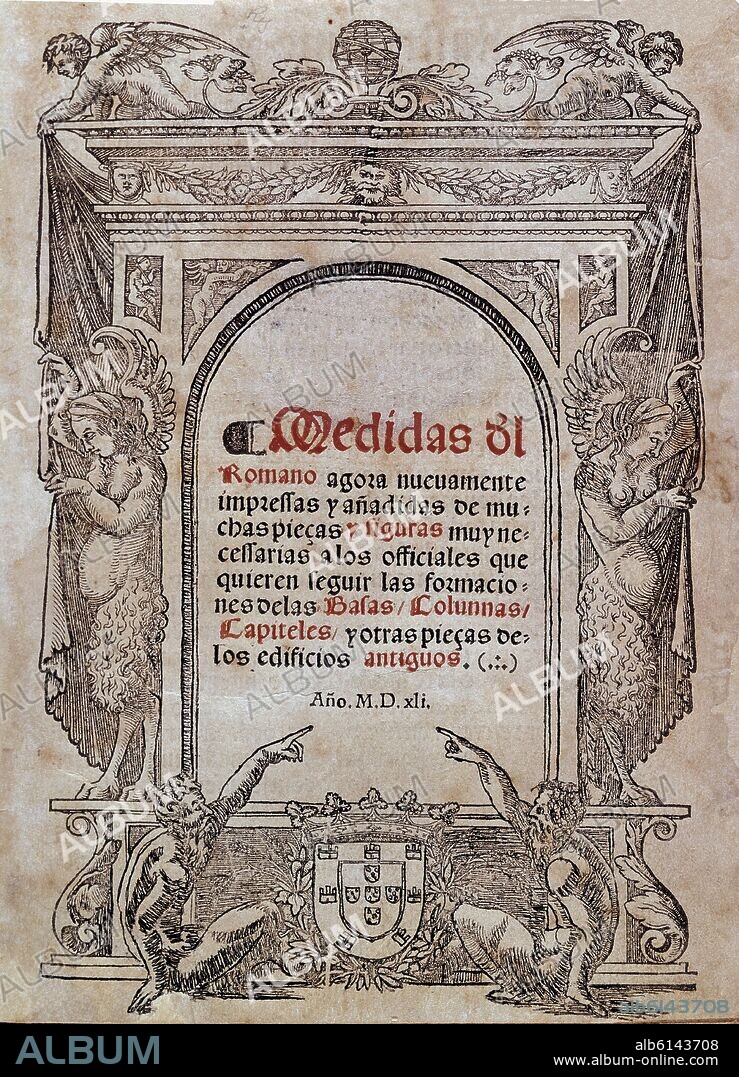 ¶ Medidas dl
Romano agora nuevamente
impressas y añadidas de mu-
chas pieças y figuras muy ne-
cessarias alos officiales que
quieren seguir las formacio-
nes delas Basas/ Colunnas/
Capiteles/ y otras pieças de-
los edificios antiguos. (.:.)
Año. M.D.xli.
ALBUM
ab6143708
ALBUM
alb6143708
www.album-online.com